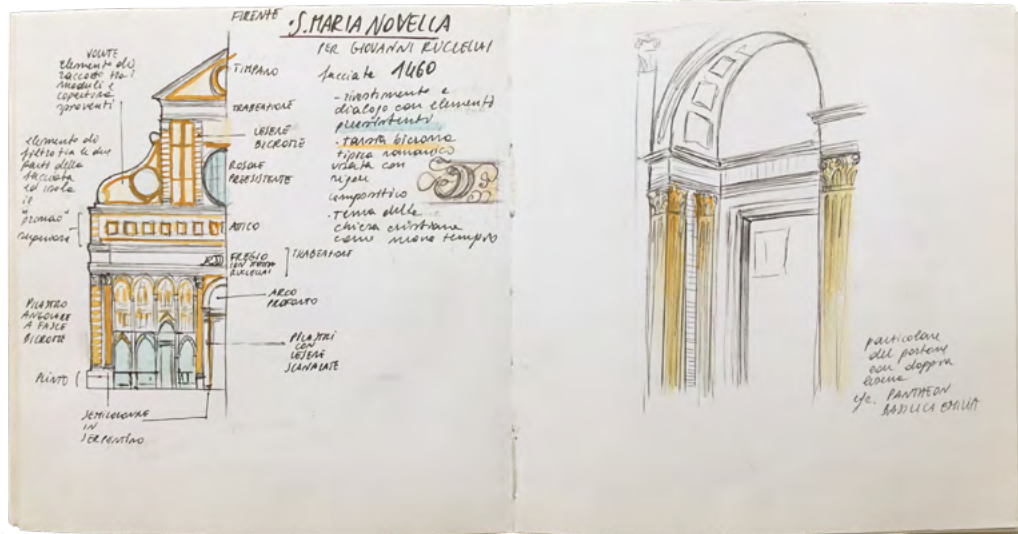 FIRENTE
S. MARIA NOVELLA
PER GIOVANNI RUCLELLAI
facciata 1460
- rivestimento e
dialogo con elementi
preesistenti
- tarsia bicroma
tipica romanico
usata con
rigore
compositivo
- Tema della
chiesa cristiana
come nuovo tempio
VOLUTE
elemento di
raccordo tra i
moduli e
copertura
spioventi
elemento di
filtro tra le due
parti della
facciata
ed isola
il
"pronao"
superiore
PILASTRO
ANGOLARE
A FASCE
BICROME
PLINTO
SEMICOLONNE
IN
SERPENTINO
TIMPANO
TRABEATIONE
LESENE
BICROME
ROSONE
PREESISTENTE
ATTICO
FREGIO
CON STEMMA
RUCLELLAI
TRABEATIONE
ARCO
PROFONDO
PILASTRI
CON
LESENE
SCANALATE
particolare
del portone
con doppia
lesena
cfr. PANTHEON
BASILICA EMILIA